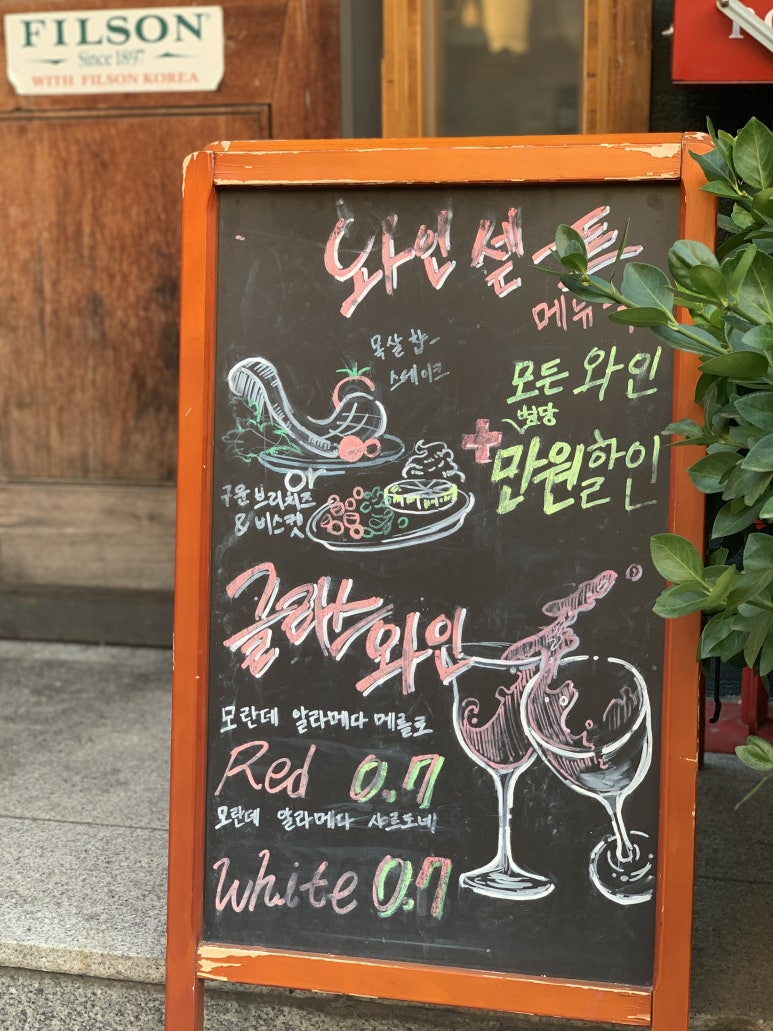 FILSON
Since 1897
WITH FILSON KOREA
와인 셑트
메뉴
목살 찹
스테이크
모든 와인
병당
+ 만원할인
or
구운 브리치즈
& 비스켓
글라스
와인
모란데 알라메다 메를로
Red 0.7
모란데 알라메다 샤르도네
White 0.7